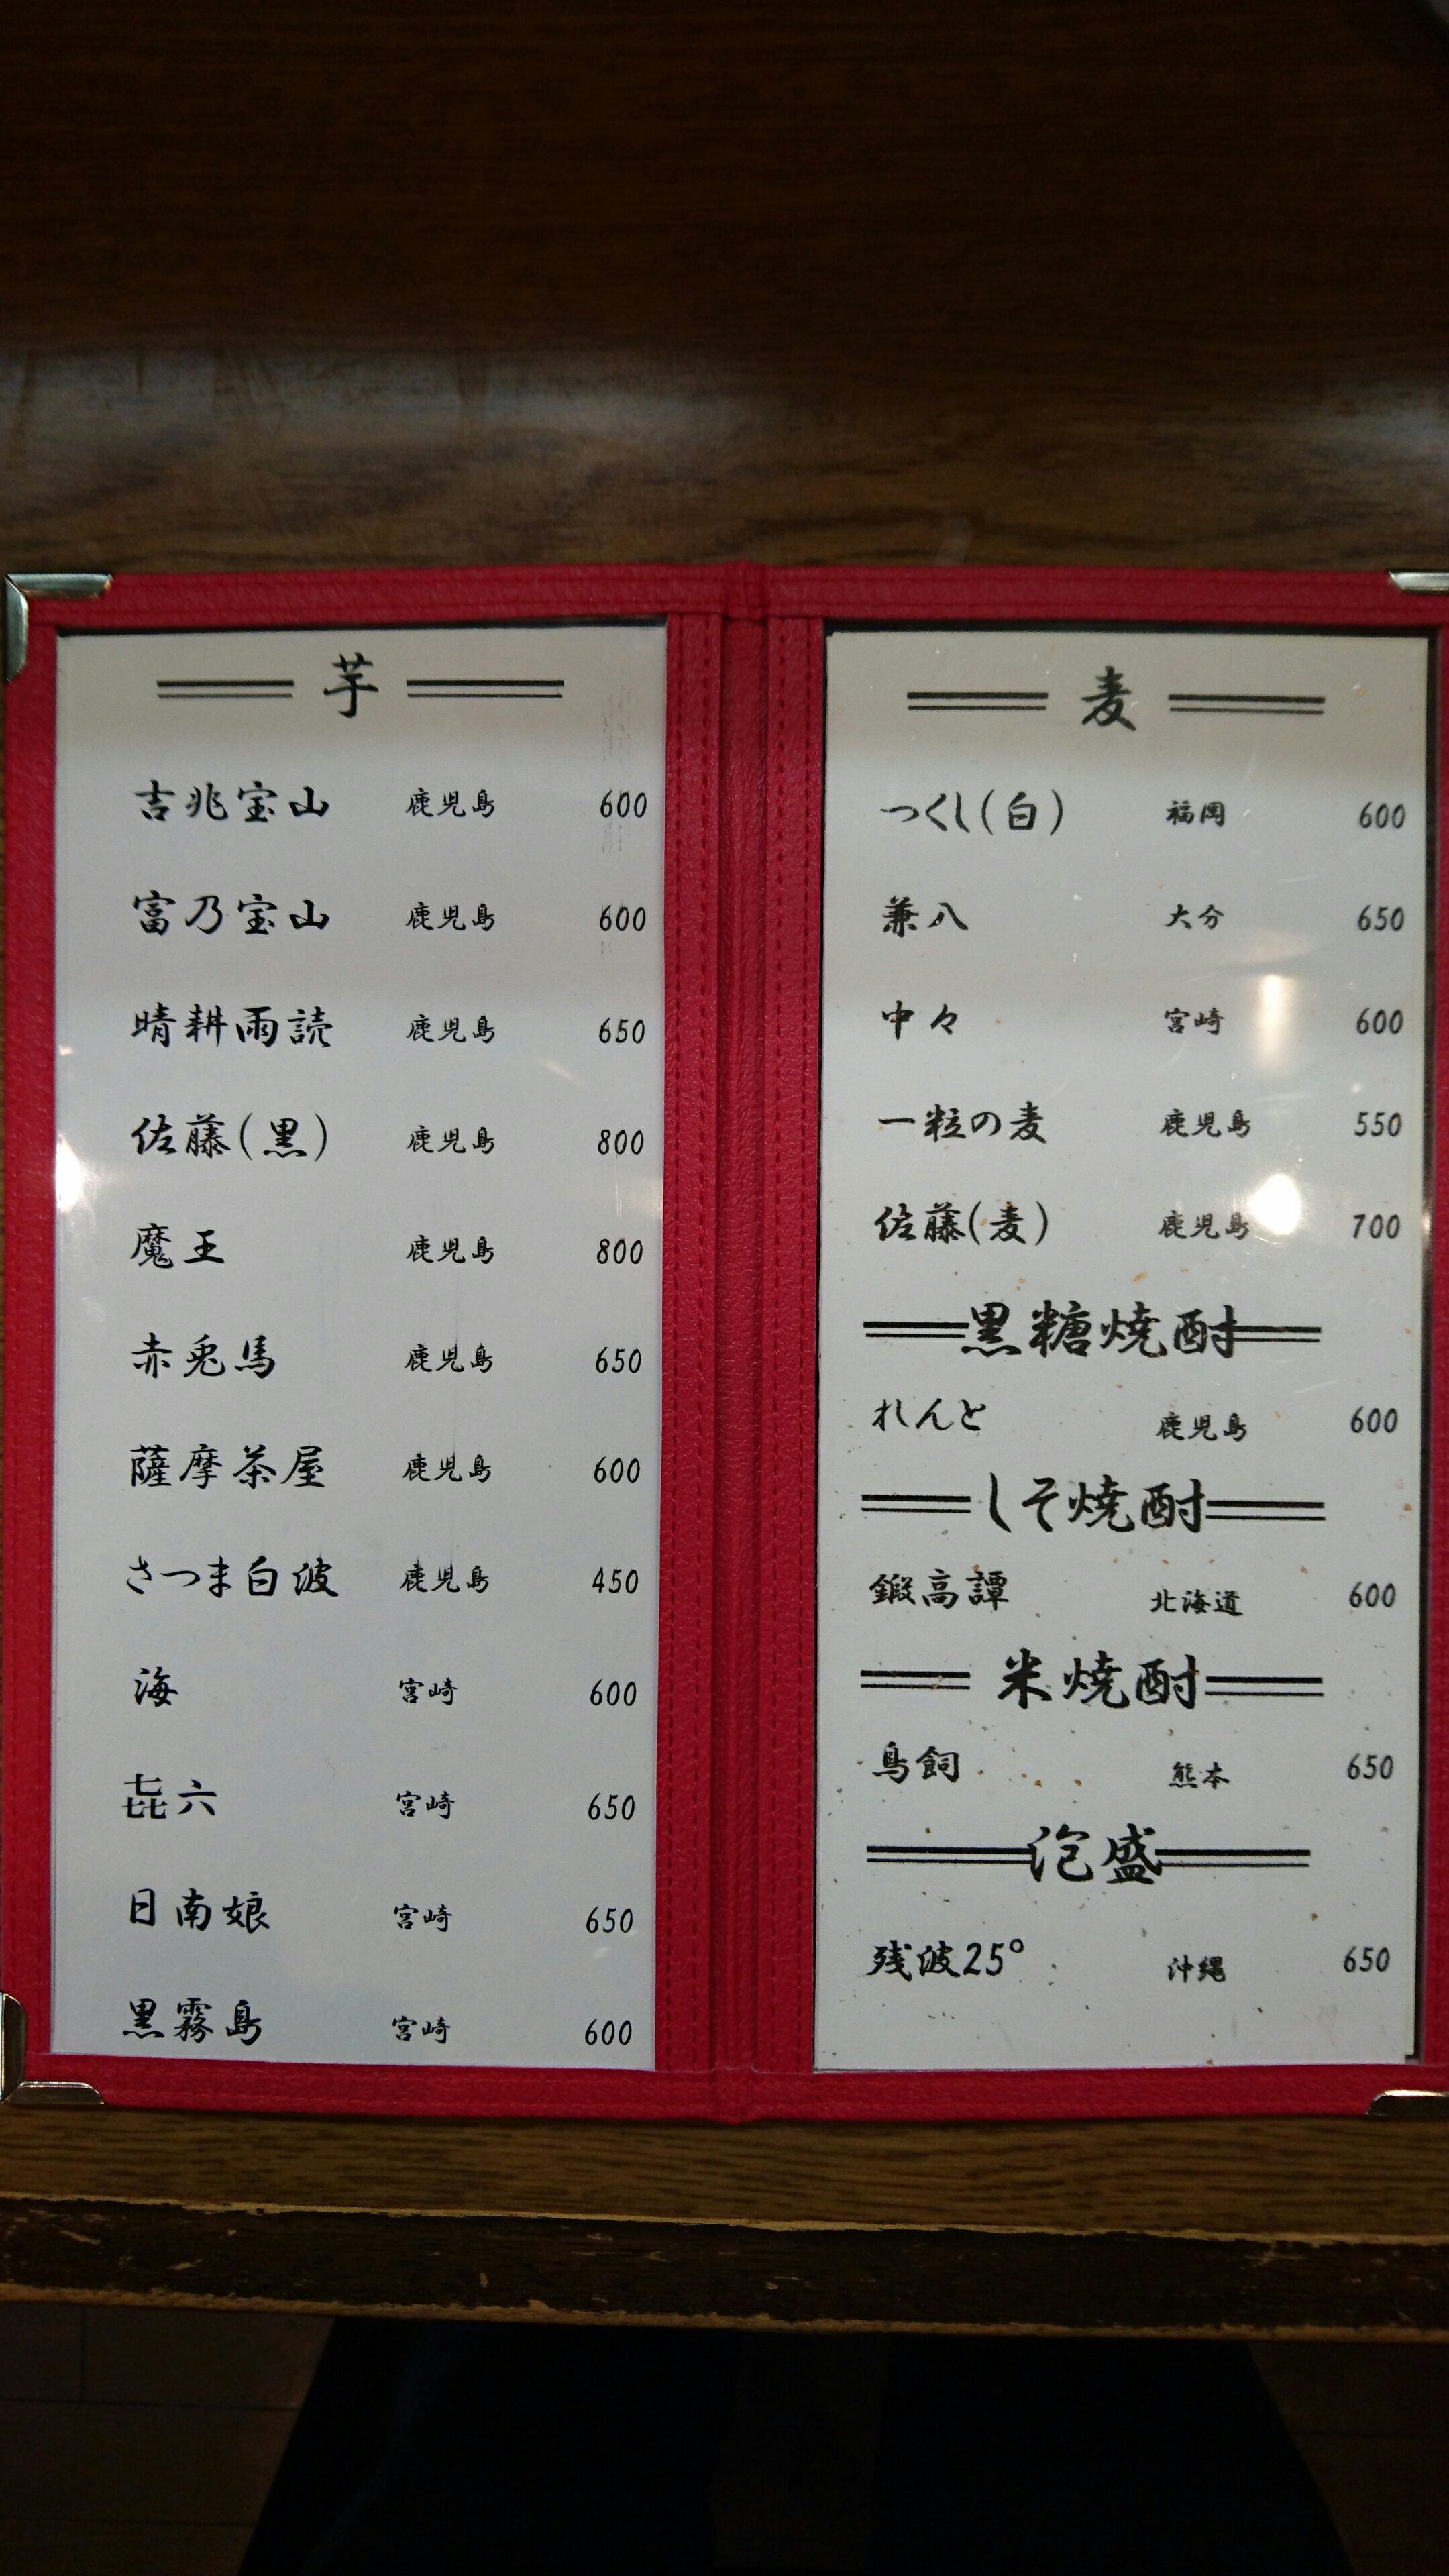 芋
吉兆宝山 鹿児島 600
富乃宝山 鹿児島 600
晴耕雨読 鹿児島 650
佐藤(黒) 鹿児島 800
魔王 鹿児島 800
赤兎馬 鹿児島 650
薩摩茶屋 鹿児島 600
さつま白波 鹿児島 450
海 宮崎 600
㐂六 宮崎 650
日南娘 宮崎 650
黒霧島 宮崎 600
麦
つくし(白) 福岡 600
兼八 大分 650
中々 宮崎 600
一粒の麦 鹿児島 550
佐藤(麦) 鹿児島 700
黒糖焼酎
れんと 鹿児島 600
しそ焼酎
鍛高譚 北海道 600
米焼酎
鳥飼 熊本 650
泡盛
残波25° 沖縄 650